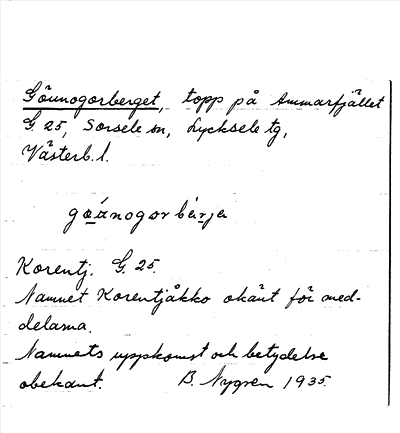 Göunogorberget, topp på Ammarfjället
G. 25, Sorsele sn, Lycksele tg,
Västerb. l.
goånogor bárja
Korentj. G. 25.
Namnet Korentjåkko okänt för med-
delarna.
Namnets uppkomst och betydelse
obekant. B. Nygren 1935.